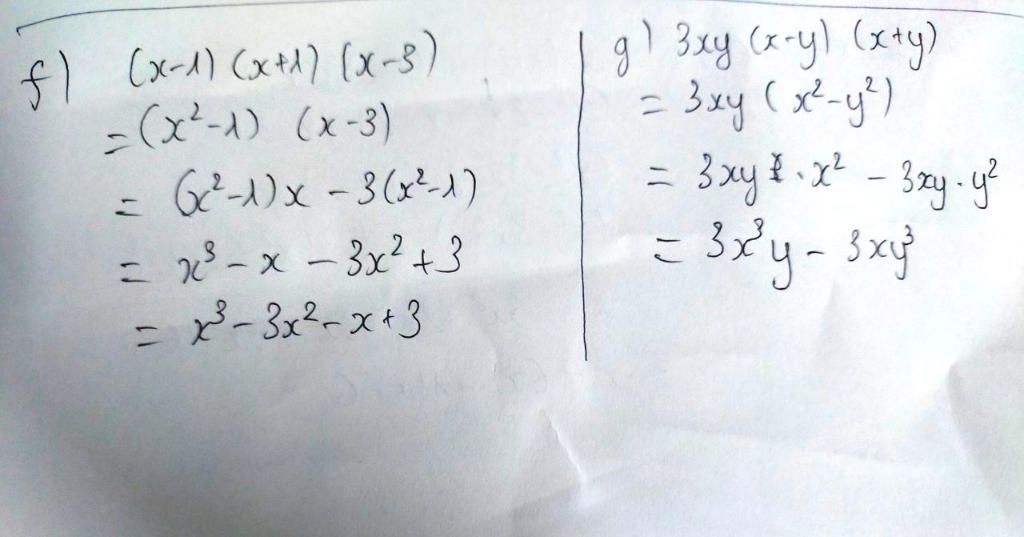 f) (x-1) (x+1) (x-3)
= (x²-1) (x-3)
= (x²-1)x - 3(x²-1)
= x³ - x - 3x² + 3
= x³ - 3x² - x + 3
g) 3xy (x-y) (x+y)
= 3xy (x²-y²)
= 3xy · x² - 3xy · y²
= 3x³y - 3xy³